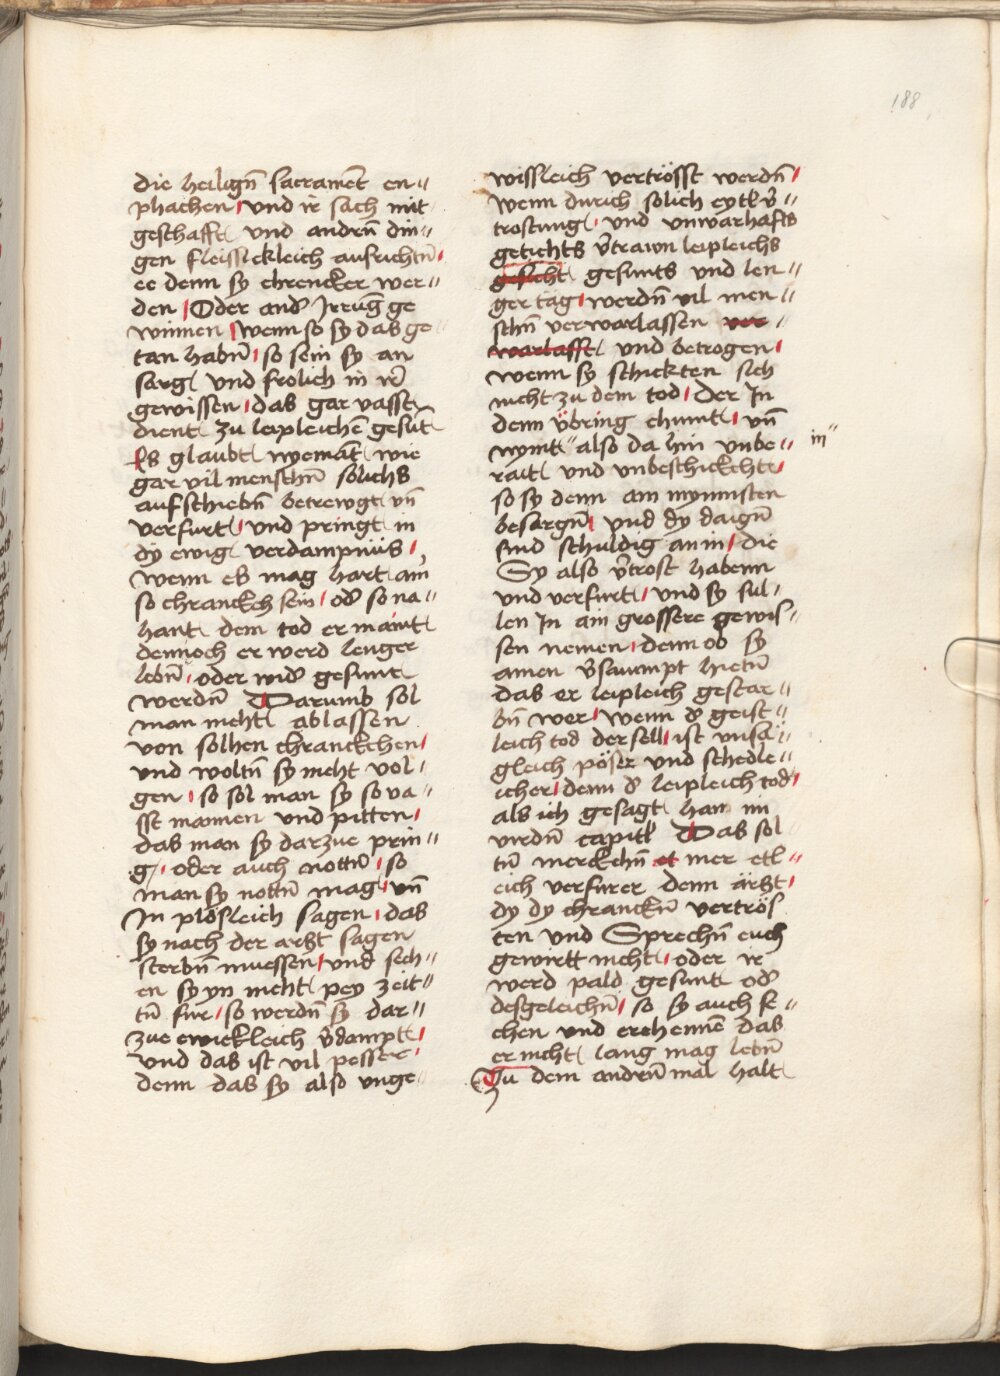 188
die heilign̄ sacramēt en〃
phachen und ir sach mit
geschafft und andrn̄ din〃
gen fleissickleich ausrichtn̄
ee denn sy chrencker wer〃
den Oder and͛ Jrrūg ge
winnen wenn so sy das ge
tan habn̄ so sein sy an
sarg und frolich in ir͛
gewissen das gar vasst
dient zu leipleichē gesūt
Es glaubt nyemāt wie
gar vil menschn̄ solichs
aufschiebn̄ betrewgt vn̄
verfurt und pringt in
dy ewig verdampnüs
wenn es mag hart aim
so chranckch sein od͛ so na〃
hant dem tod er maint
dennoch er werd lenger
lebn̄ oder wid͛ gesunt
werdn̄ Darumb sol
man nicht ablassen
von solhen chranckchen
und woltn̄ sy nicht vol〃
gen so sol man sy so va〃
sst manen und pitten
das man sy darzue prin〃
g oder auch nottn̄ so
man sy nottn̄ mag vn̄
In plösleich sagen das
sy nach der arzt sagen
sterbn̄ muessen und sech〃
en sy yn nicht pey zeit〃
tn̄ für so werdn̄ sy dar〃
zue ewickleich v͛dampt
und das ist vil pesser
denn das sy also unge〃
wissleich vertrösst werdn̄
wenn durich solich eytl v͛〃
trostung und unwarhafts
getichts v͛trawn leipleichs
gesicht gesunts und len〃
ger tag werdn̄ vil men〃
schn̄ verwarlassen ver〃
warlasst und betrogen
wenn sy schickten sich
nicht zu dem tod Der In
denn vbring chumt vn̄
nymt 〃 also da hin unbe〃 in〃
rait und unbeschickcht
so sy denn am mynnisten
besargn̄ und dy daign̄
sind schuldig an in die
Sy also v͛trost habenn
und verfurt und sy sul〃
len In ain grossere gewis〃
sen nemen denn ob sy
ainen v͛saumpt hietn̄
das er leipleich gestar〃
bn̄ wer wenn d͛ geist〃
leich tod der sell ist unsä〃
gleich pöser und schedle〃
icher denn d͛ leipleich tod
als ich gesagt han im
virdn̄ capitl Das sol
tn̄ merckchn̄ et mer etl〃
eich verfurer denn ärzt
dy dy chranckn̄ vertrös
ten und Sprechn̄ euch
gewirtt nicht oder ir
werd pald gesunt od͛
desgeleichn̄ so sy auch se〃
chen und erchennē das
er nicht lang mag lebn̄
Zu dem andrn̄ mal halt